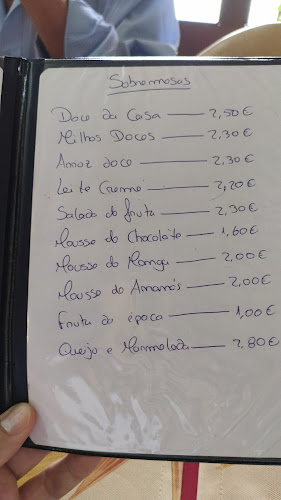 Sobremesas
Doce da Casa — 2,50€
Milhos Doces — 2,30€
Arroz doce — 2,30€
Leite Creme — 2,20€
Salada de fruta — 2,30€
Mousse de Chocolate — 1,60€
Mousse de Manga — 2,00€
Mousse de Ananás — 2,00€
Fruta da época — 1,00€
Queijo e Marmelada — 2,80€